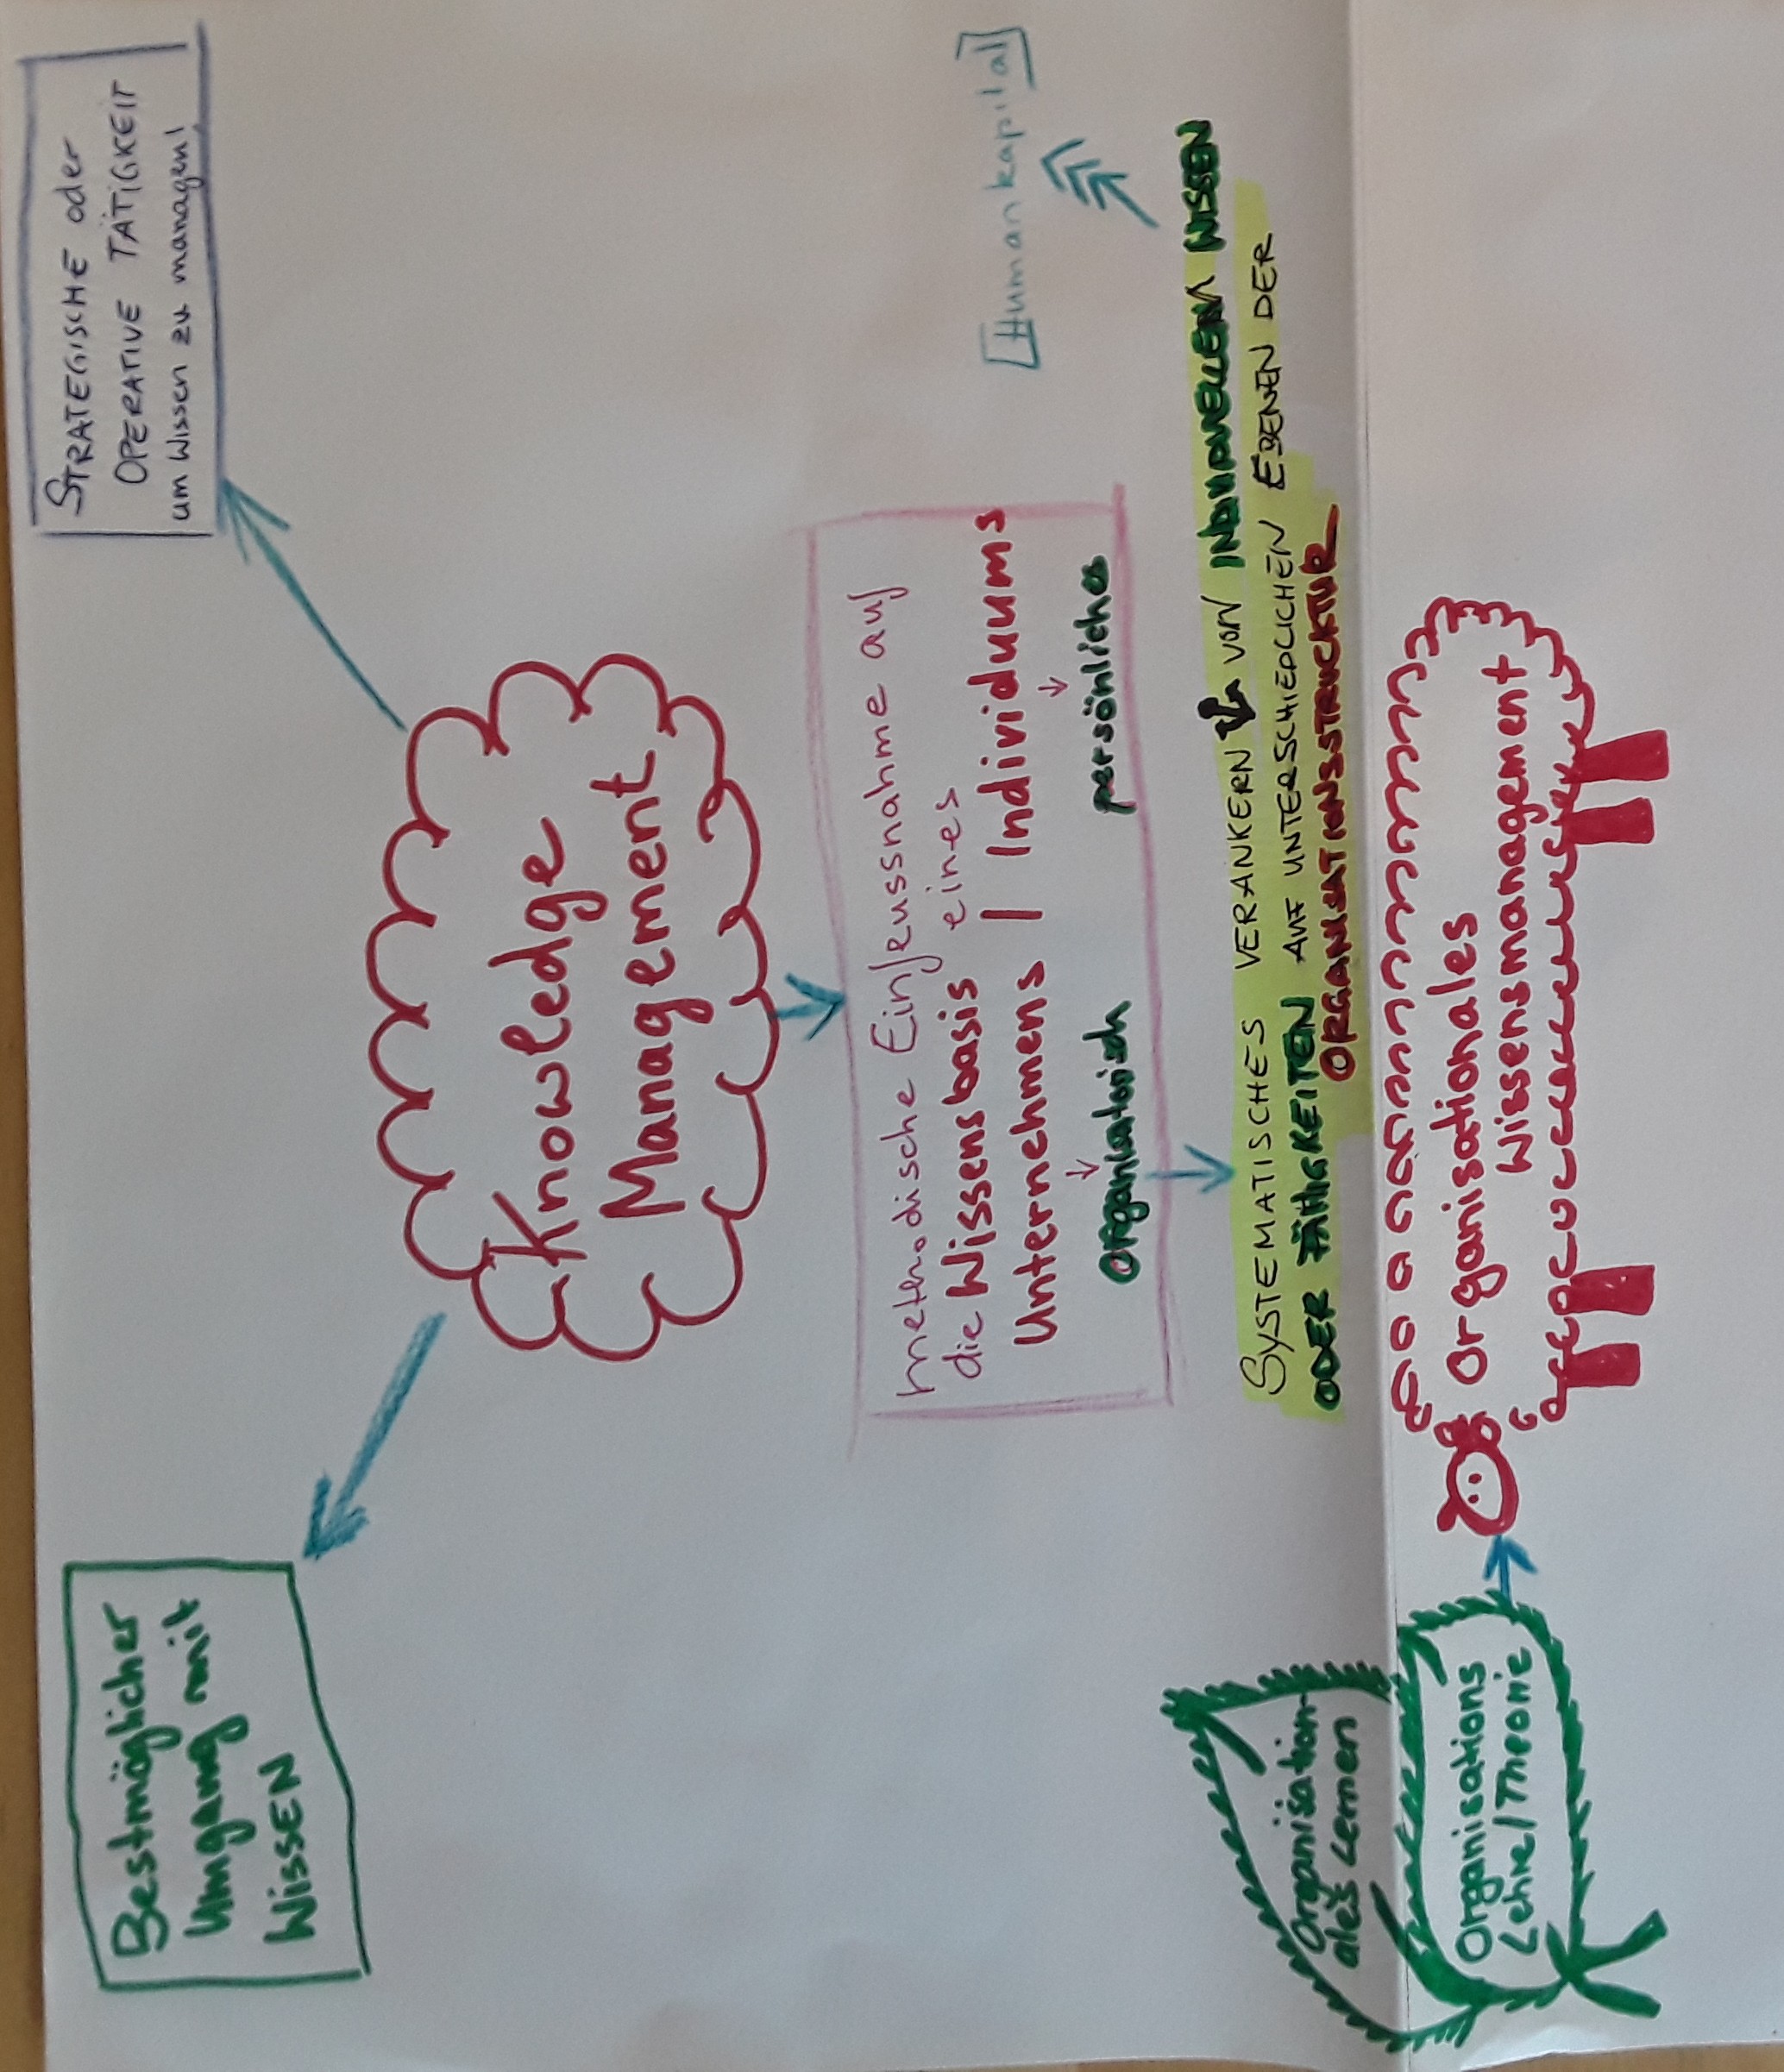 Bestmöglicher
Umgang mit
WissEN
STRATEGISCHE oder
OPERATIVE TÄTiGKEIT
um Wissen zu managen!
Knowledge
Management
methodische Einfleussnahme auf
die Wissensbasis eines
Unternehmens / Individuums
↓ ↓
organisatorisch persönliches
[Humankapital]
SYSTEMATISCHES VERANKERN VON INDIVIDUELLEM WISSEN
ODER FÄHIGKEITEN AUF UNTERSCHIEDLICHEN EBENEN DER
ORGANISATIONSSTRUCKTUR
Organisation-
ales Lernen
Organisations
Lehre/Theorie
Organisationales
Wissensmanagement